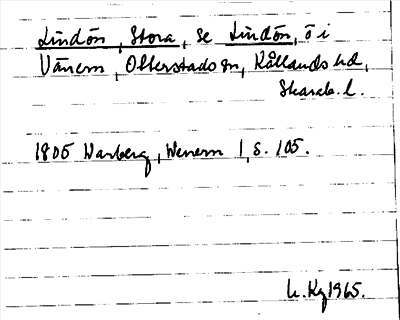 Lindön, Stora, se Lindön, ö i
Vänern, Otterstads sn, Kållands hd,
Skarab. l.
1805 Warberg, Wenern 1, s. 105.
1965.